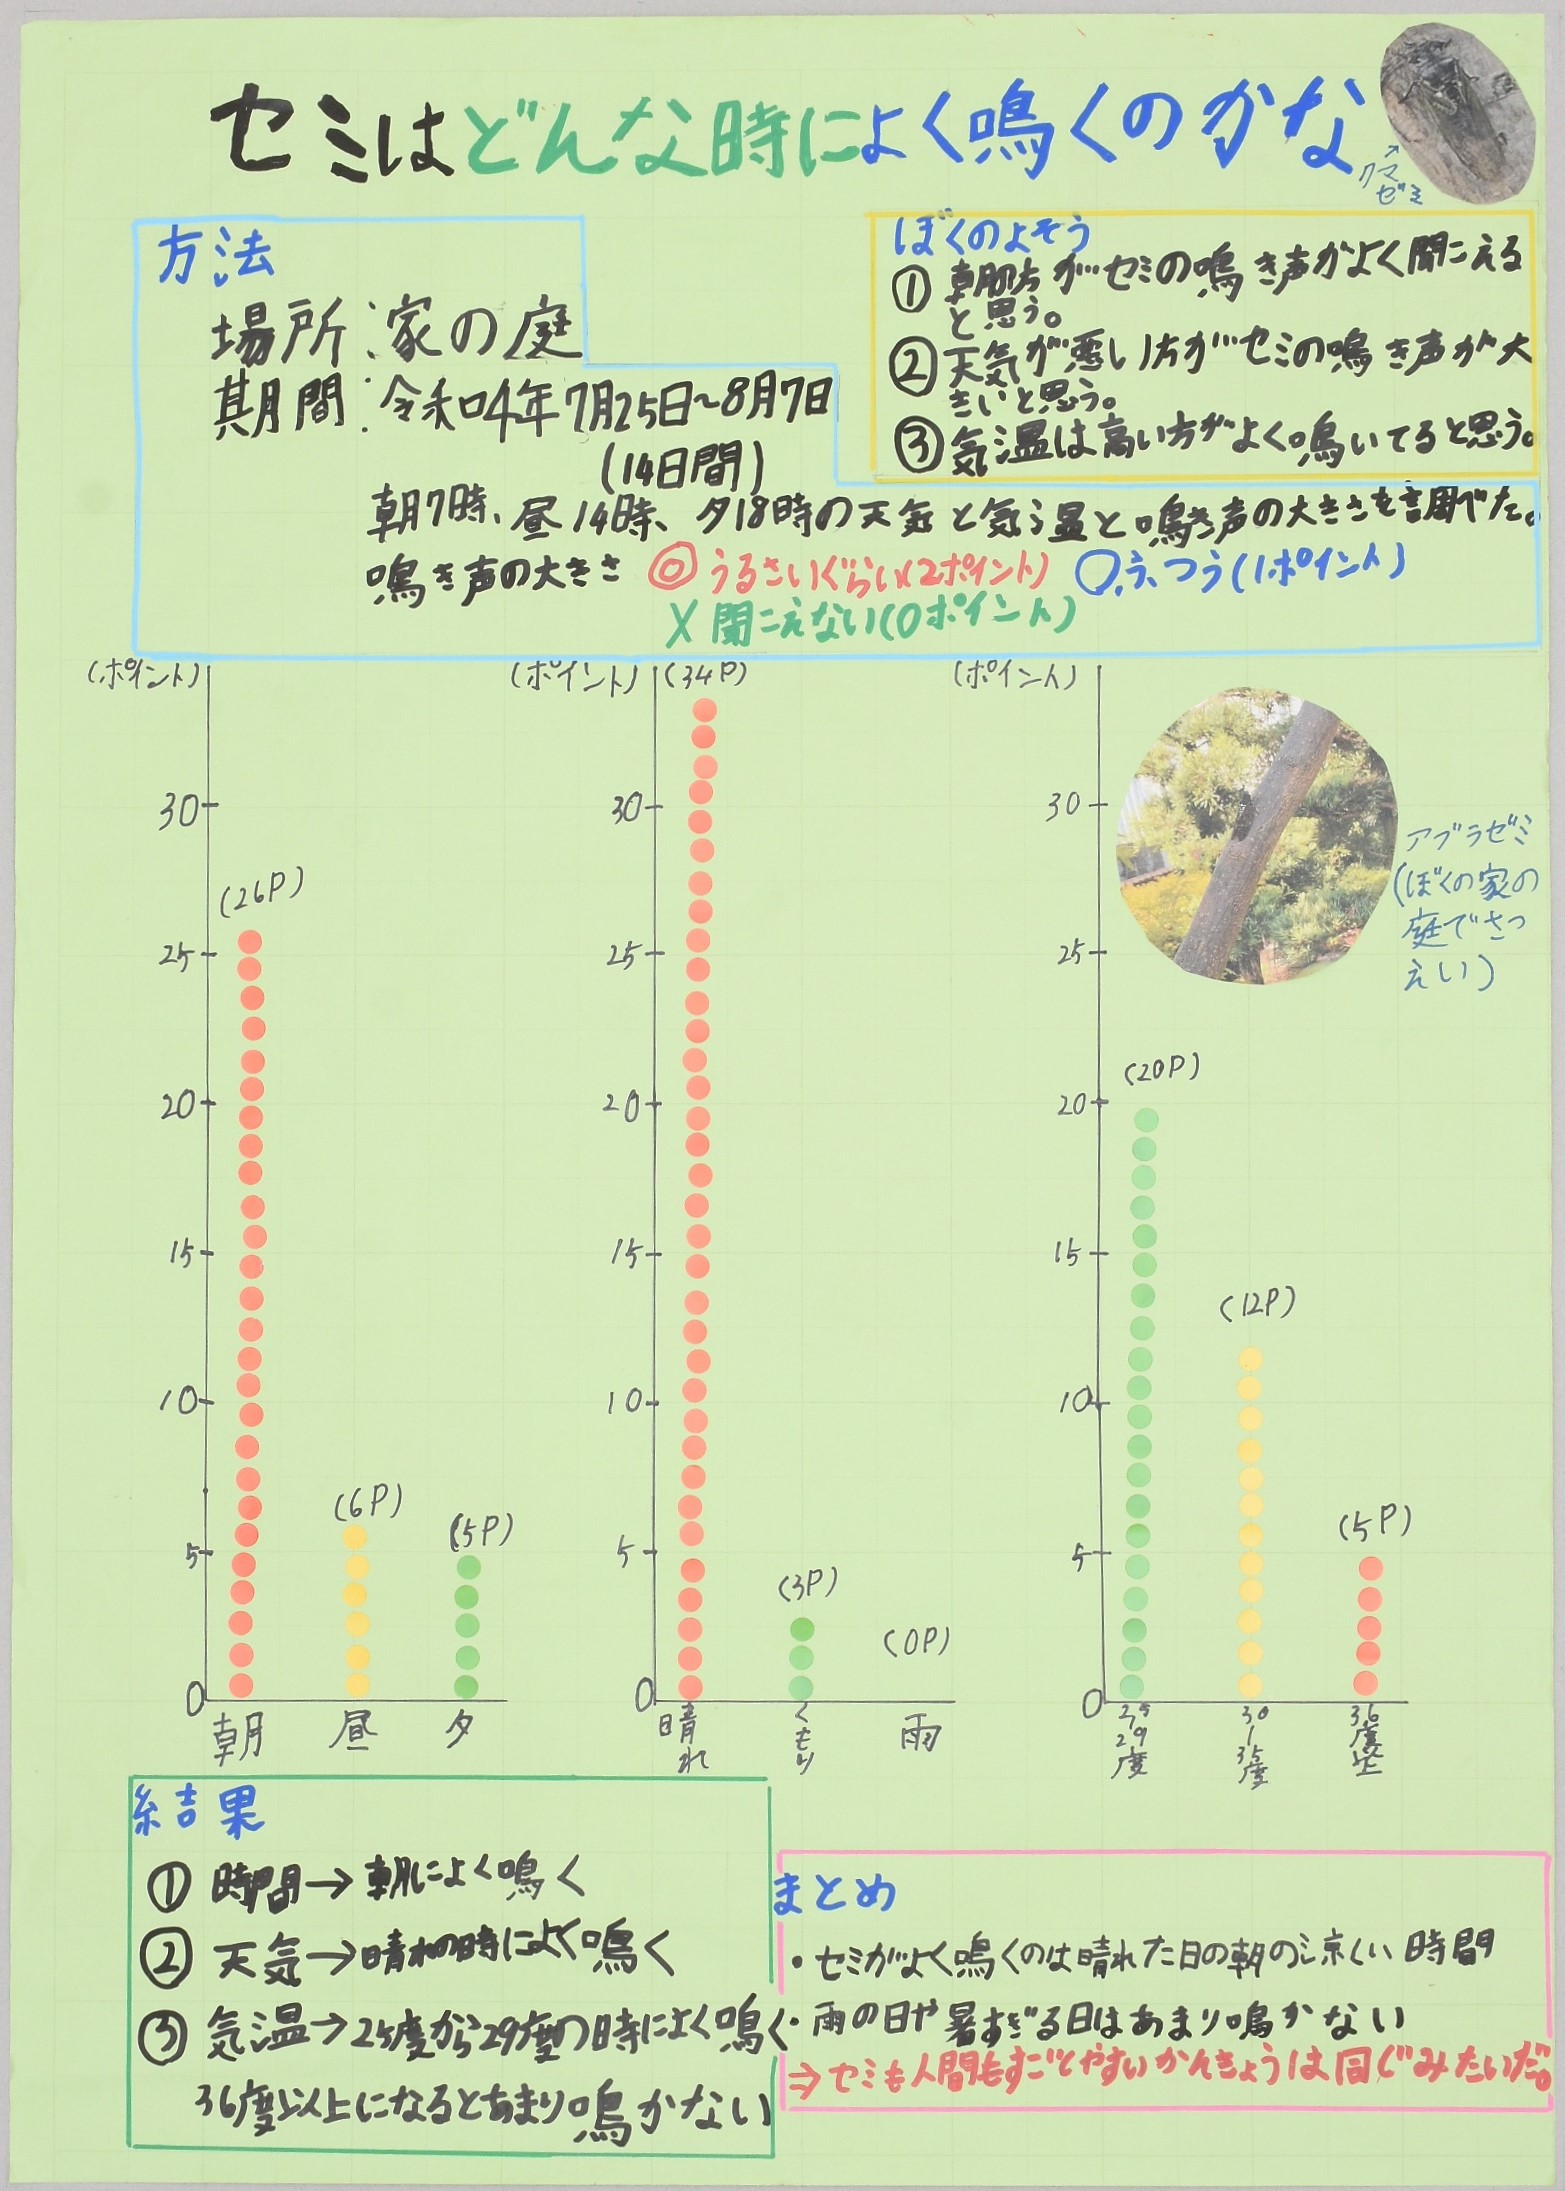 セミはどんな時によく鳴くのかな
クマ
ゼミ
方法
場所:家の庭
期間:令和4年7月25日~8月7日
(14日間)
朝7時、昼14時、夕18時の天気と気温と鳴き声の大きさを調べた。
鳴き声の大きさ ◎うるさいぐらい(2ポイント) ○ふつう(1ポイント)
X聞こえない(0ポイント)
ぼくのよそう
① 朝の方がセミの鳴き声がよく聞こえる
と思う。
② 天気が悪い方がセミの鳴き声が大
きいと思う。
③ 気温は高い方がよく鳴いてると思う。
(ポイント)
30
25
20
15
10
5
0
(26P)
(6P)
(5P)
朝
昼
夕
(ポイント)
30
25
20
15
10
5
0
(34P)
(3P)
(0P)
晴れ
くもり
雨
(ポイント)
30
25
20
15
10
5
0
(20P)
(12P)
(5P)
25
29度
30
35度
36度
アブラゼミ
(ぼくの家の
庭でさつ
えい)
結果
① 時間→朝によく鳴く
② 天気→晴れの時によく鳴く
③ 気温→25度から29度の時によく鳴く
36度以上になるとあまり鳴かない
まとめ
・セミがよく鳴くのは晴れた日の朝の涼しい時間
・雨の日や暑すぎる日はあまり鳴かない
⇒セミも人間もすごしやすいかんきょうは同じみたいだ。